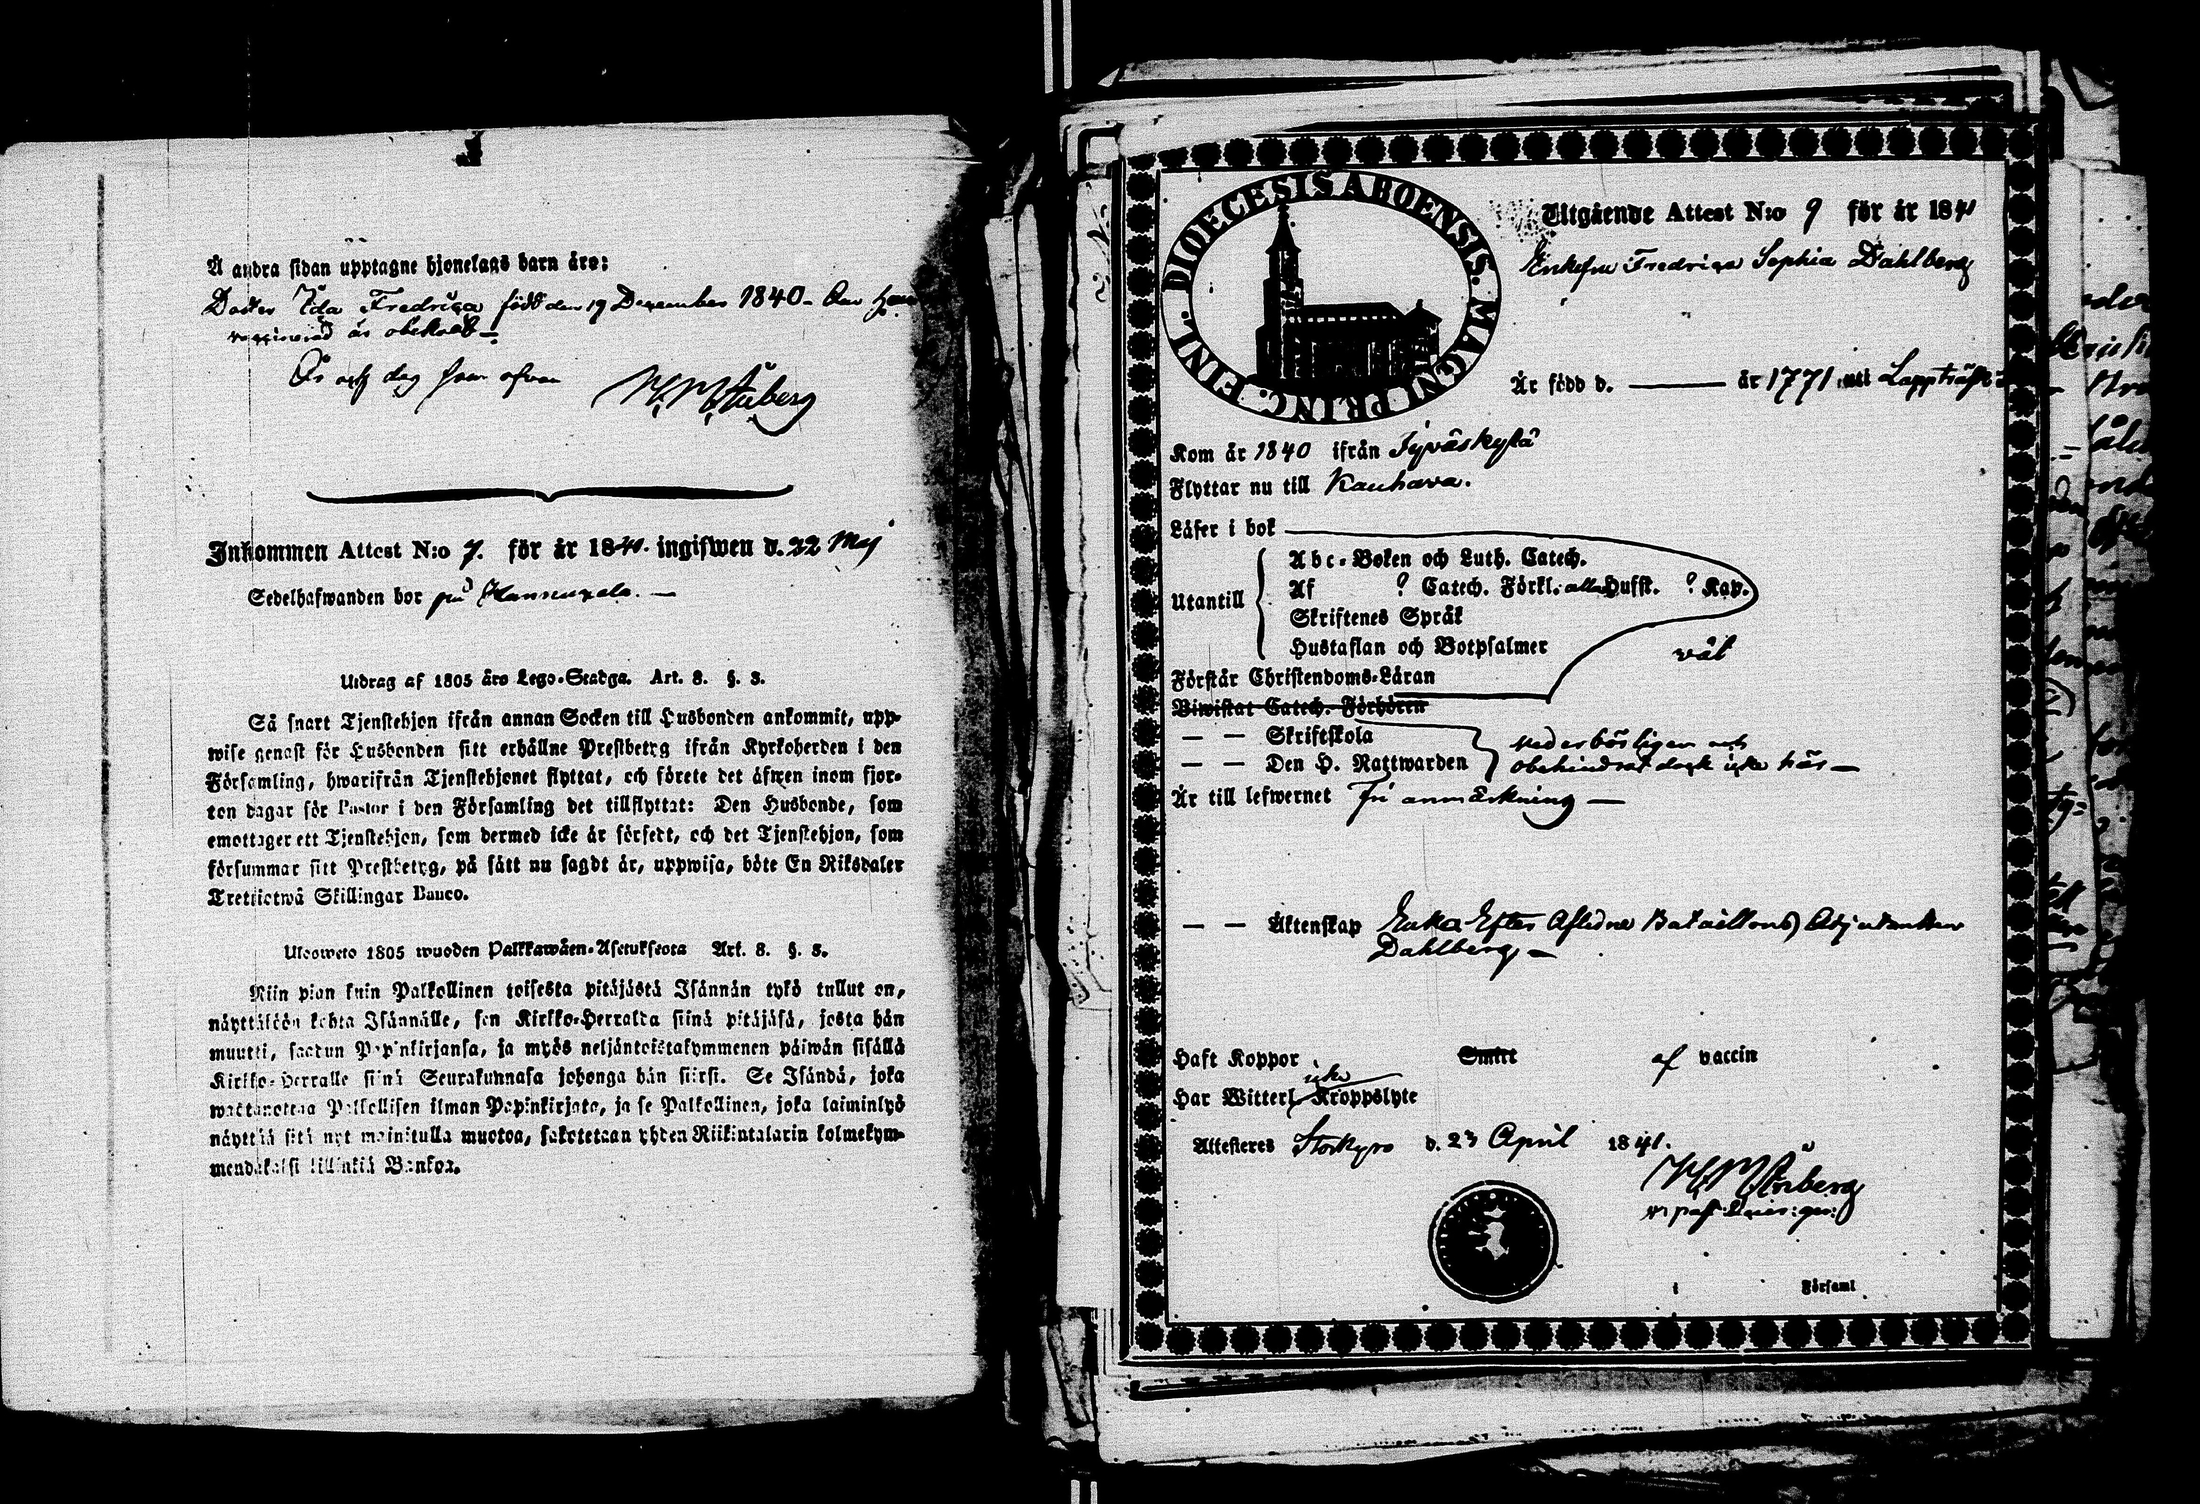 Å andra sidan upptagne hjonelags barn äro:
Dotter Ida Fredrica född den 19 December 1840 - Om hon
vaccinerad är obekant -
År och dag som ofvan
Inkommen Attest N:o 7. för år 1841. ingifwen d. 22 Maj
Sedelhafwanden bor på
Utdrag af 1805 års Lego-Stadga. Art. 8. §. 3.
Så snart Tjenstehjon ifrån annan Socken till Husbonden ankommit, upp-
wise genast för Husbonden sitt erhållne Prestbetyg ifrån Kyrkoherden i den
Församling, hwarifrån Tjenstehjonet flyttat, och förete det äfwen inom fjor-
ton dagar för Pastor i den Församling det tillflyttat: Den Husbonde, som
emottager ett Tjenstehjon, som dermed icke är försedt, och det Tjenstehjon, som
försummar sitt Prestbetyg, på sätt nu sagdt är, uppwisa, böte En Riksdaler
Trettiotwå Skillingar Banco.
Ulosweto 1805 wuoden Palkkawäen-Asetuksesta Art. 8. §. 3.
Niin pian kuin Palkollinen toisesta pitäjästä Isännän tykö tullut on,
näyttäköön kohta Isännälle, sen Kirkko-Herralda siinä pitäjäsä, josta hän
muutti, saadun Papinkirjansa, ja myös neljäntoistakymmenen päiwän sisällä
Kirkko-Herralle siinä Seurakunnasa johonga hän siirsi. Se Isändä, joka
wastanottaa Palkollisen ilman Papinkirjata, ja se Palkollinen, joka laiminlyö
näyttää sitä nyt mainitulla muotoa, sakotetaan yhden Riikintalarin kolmekym-
mendäkaksi killinkiä Bankoa.
DIOECESIS ABOENSIS. MAGNI PRINC. FINL.
Utgående Attest N:o 9 för år 1841
Enkefru Fredrica Sophia Dahlberg
Är född d. — år 1771 uti Lappträsk
Kom år 1840 ifrån Jyväskylä
Flyttar nu till Kauhava.
Läser i bok
Utantill
Abc-Boken och Luth. Catech.
Af ? Catech. Förkl. alla Hufst. ? Kap.
Skriftenes Språk
Hustaflan och Botpsalmer
väl
Förstår Christendoms-Läran
Biwistat Catech. Förhören
— — Skriftskola
— — Den H. Nattwarden
vederbörligen och
obehindrat dock icke här —
Är till lefwernet fri anmärkning —
— — Äktenskap Enka Efter Aflidne Bataillons Adjutanten
Dahlberg. —
Haft Koppor Smitt af vaccin
Har Witterl. icke Kroppslyte
Attesteres Storkyro d. 23 April 1841.
i Församl